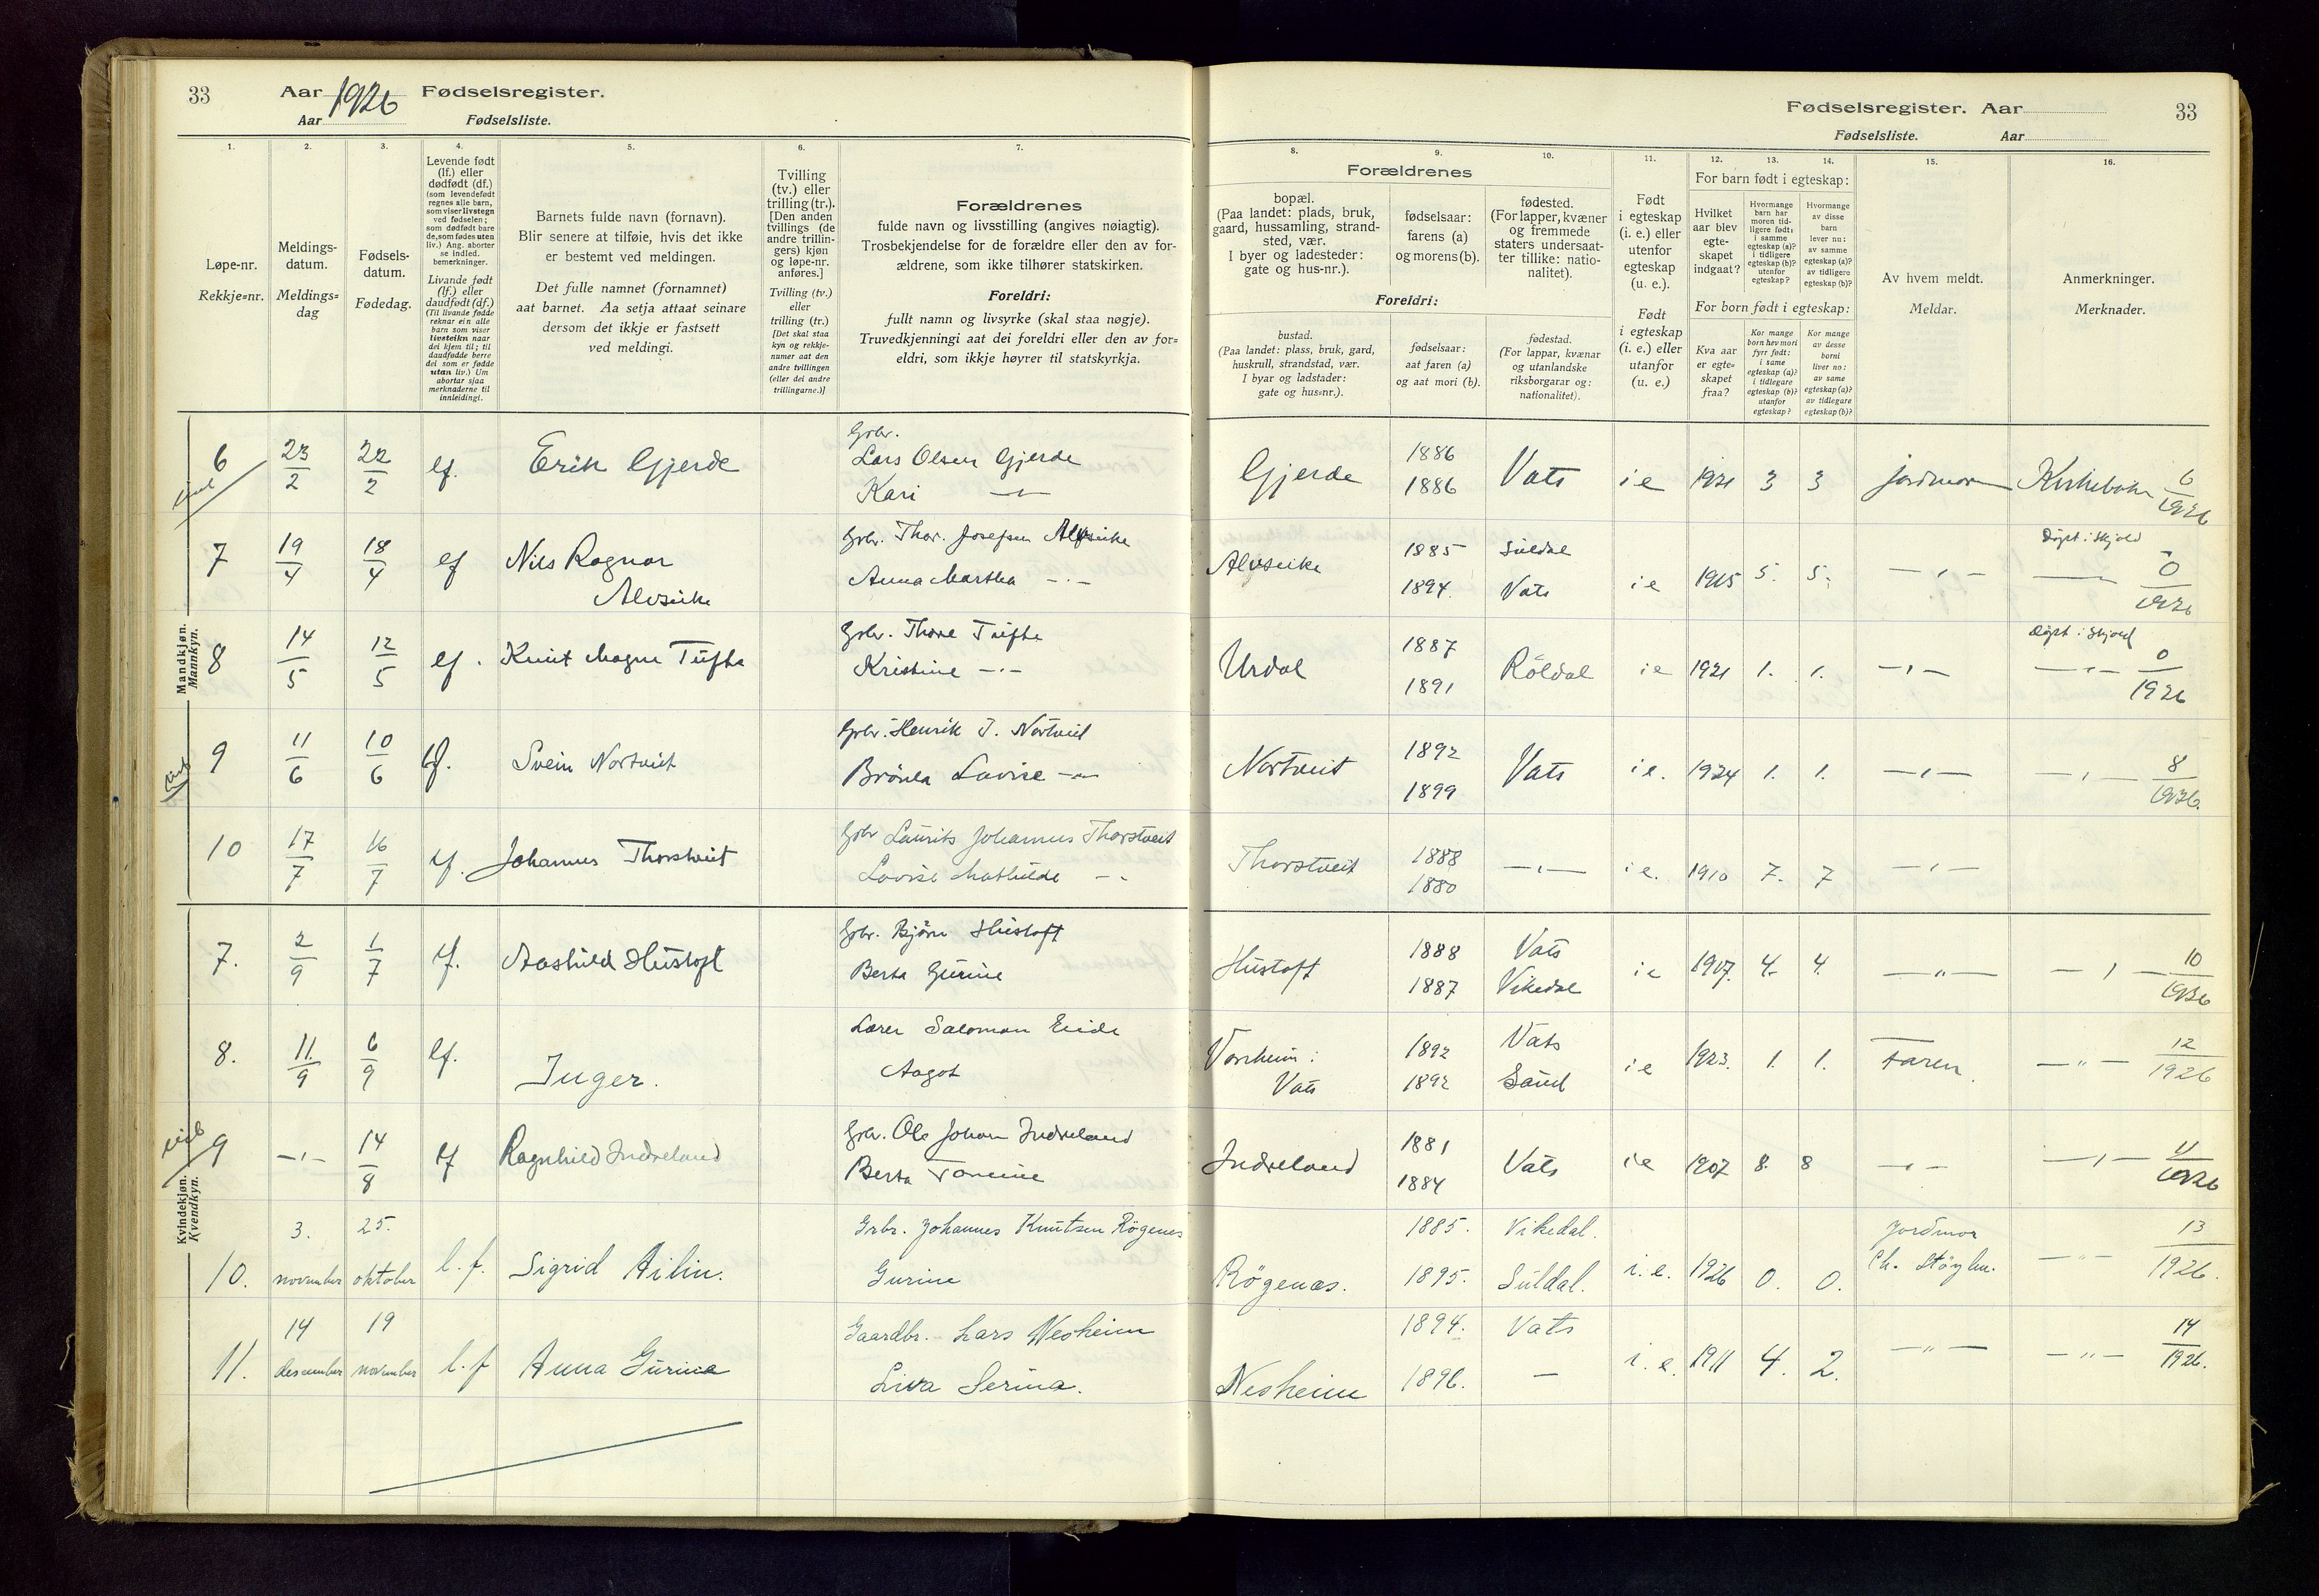 33 Aar 1926 Fødselsregister.
Aar Fødselsliste.
1. 2. 3. 4. 5. 6. 7.
Løpe-nr.
Rekkje=nr.
Meldings-
datum.
Meldings=
dag
Fødsels-
datum.
Fødedag.
Levende født
(lf.) eller
dødfødt (df.)
(som levendefødt
regnes alle barn,
som viser livstegn
ved fødselen;
som dødfødt bare
de, som fødes uten
liv.) Ang. aborter
se indled.
bemerkninger.
Livande født
(lf.) eller
daudfødt (df.)
(Til livande fødde
reknar ein alle
barn som viser
livsteikn naar
dei kjem til; til
daudfødde berre
dei som er fødde
utan liv.) Um
abortar sjaa
merknaderne til
innleidingi.
Barnets fulde navn (fornavn).
Blir senere at tilføie, hvis det ikke
er bestemt ved meldingen.
Det fulle namnet (fornamnet)
aat barnet. Aa setja attaat seinare
dersom det ikkje er fastsett
ved meldingi.
Tvilling
(tv.) eller
trilling (tr.).
[Den anden
tvillings (de
andre trillin-
gers) kjøn
og løpe-nr.
anføres.]
Tvilling (tv.)
eller
trilling (tr.)
[Det skal staa
kyn og rekkje-
numer aat den
andre tvillingen
(eller dei andre
trillingarne.)]
Forældrenes
fulde navn og livsstilling (angives nøiagtig).
Trosbekjendelse for de forældre eller den av for-
ældrene, som ikke tilhører statskirken.
Foreldri:
fullt namn og livsyrke (skal staa nøgje).
Truvedkjenningi aat dei foreldri eller den av for=
eldri, som ikkje høyrer til statskyrkja.
Mandkjøn.
Mannkyn.
6 23/2 22/2 lf. Erik Gjerde Gbr. Lars Olsen Gjerde
Kari — " —
7 19/4 18/4 lf Nils Ragnar Gbr. Thor. Josefsen Alvseike
Alvseike Anna Martha — " —
8 14/5 12/5 lf. Knut Magne Tufte Gbr. Thore Tufte
Kristine — " —
9 11/6 10/6 lf. Svein Nortveit Gbr. Henrik J. Nortveit
Lovise — " —
10 17/7 16/7 lf. Johannes Thorstveit Gbr Laurits Johannes Thorstveit
Lovise Mathilde — "
Kvindekjøn.
Kvendkyn.
7. 2/9 1/7 lf. Aashild Hustoft Gbr. Bjørn Hustoft
Berta Gurine
8. 11/9 6/9 lf. Inger. Lærer Salomon Eeide
Aagot
9 — " — 14/8 lf Ragnhild Indreland Gbr. Ole Johan Indreland
Berta Tomine
10. 3. november 25. oktober l. f. Sigrid Ailin. Grbr. Johannes Knutsen Røgenes
Gurine
11. 14 desember 19 november l. f Anna Gurina Gaardbr. Lars Nesheim
Liva Serina.
Fødselsregister. Aar 33
Fødselsliste. Aar
8. 9. 10. 11. 12. 13. 14. 15. 16.
Forældrenes
bopæl.
(Paa landet: plads, bruk,
gaard, hussamling, strand-
sted, vær.
I byer og ladesteder:
gate og hus-nr.).
fødselsaar:
farens (a)
og morens (b).
fødested.
(For lapper, kvæner
og fremmede
staters undersaat-
ter tillike: natio-
nalitet).
Foreldri:
bustad.
(Paa landet: plass, bruk, gard,
huskrull, strandstad, vær.
I byar og ladstader:
gate og hus=nr.).
fødselsaar:
aat faren (a)
og aat mori (b).
fødestad.
(For lappar, kvænar
og utanlandske
riksborgarar og:
nationalitet).
Født
i egteskap
(i. e.) eller
utenfor
egteskap
(u. e.).
Født
i egteskap
(i. e.) eller
utanfor
(u. e.)
For barn født i egteskap:
Hvilket
aar blev
egte-
skapet
indgaat?
Hvormange
barn har
moren tid-
ligere født:
i samme
egteskap (a)?
i tidligere
egteskap (b)?
utenfor
egteskap?
Hvormange
av disse
barn
lever nu:
av samme
egteskap (a)?
av tidligere
egteskap (b)?
For born født i egteskap:
Kva aar
er egte-
skapet
fraa?
Kor mange
born hev mori
fyrr født:
i same
egteskap (a)?
i tidlegare
egteskap (b)?
utanfor
egteskap?
Kor mange
av desse
borni
liver no:
av same
egteskap (a)?
av tidlegare
egteskap (b)?
Av hvem meldt.
Meldar.
Anmerkninger.
Merknader.
Gjerde 1886 1886 Vats i e 1921 3 3 jordmor Kirkebokn 6/1926
Alvseike 1885 Suldal 1894. Vats i e 1915 5. 5. — " — Døpt i Skjold 0/1926
Urdal 1887 1891 Röldal i e 1921 1. 1. — " — Døpt i Skjold — " — 0/1926
Nortveit 1892 1899 Vats i e. 1924 1. 1. — " — — " — 8/1926.
Thorstveit 1888 1880 — " — i e. 1910 7. 7 — " —
Hustoft 1888 Vats 1887 Vikedal i e 1907. 4. 4. — " — — " — 10/1926
Vats 1892 Vats 1892 Sand i e 1923. 1. 1. Faren. — " — 12/1926
Indreland 1881 1884 Vats i e 1907 8. 8 — " — — " — 11/1926
Røgenæs. 1885. Vikedal. 1895. Suldal. i. e. 1926 0. 0. Jordmor — " — 13/1926.
Nesheim 1894. Vats 1896. — i. e. 1911 4. 2. — " — — " — 14/1926.